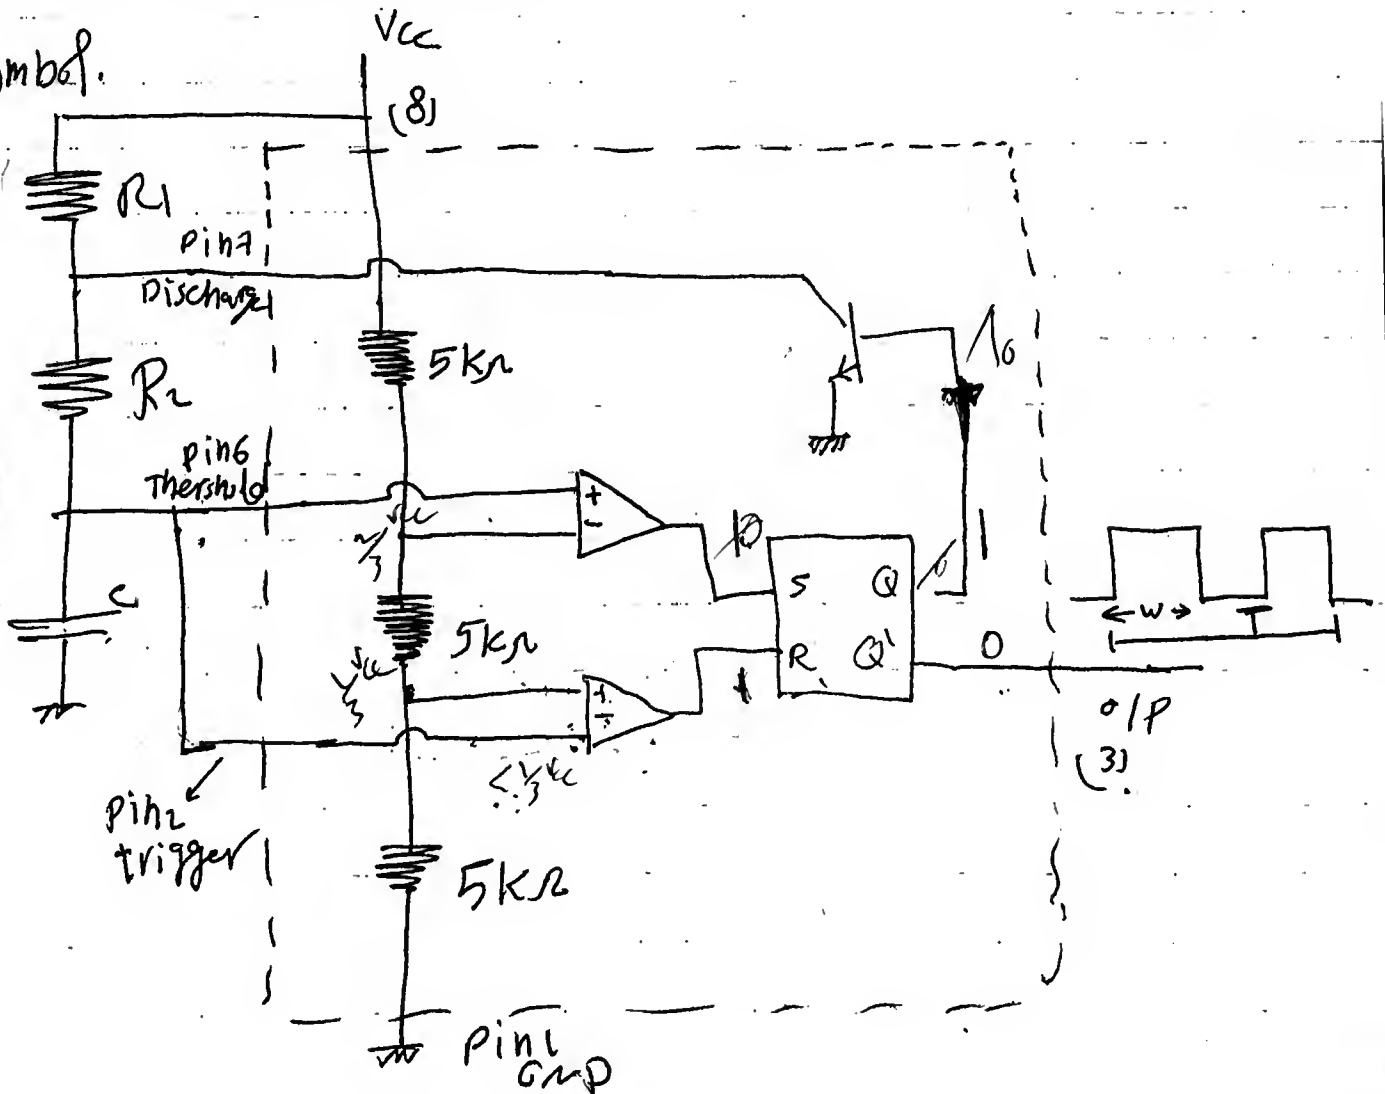 Vcc
mbol.
(8)
R1
pin7
Discharge
5KΩ
R2
pin6
Thershold
2/3 Vcc
+
-
S
Q
1
R
Q'
0
W
T
C
5KΩ
1/3 Vcc
+
-
< 1/3 Vcc
O/P
(3).
pin2
trigger
5KΩ
pin1
GND